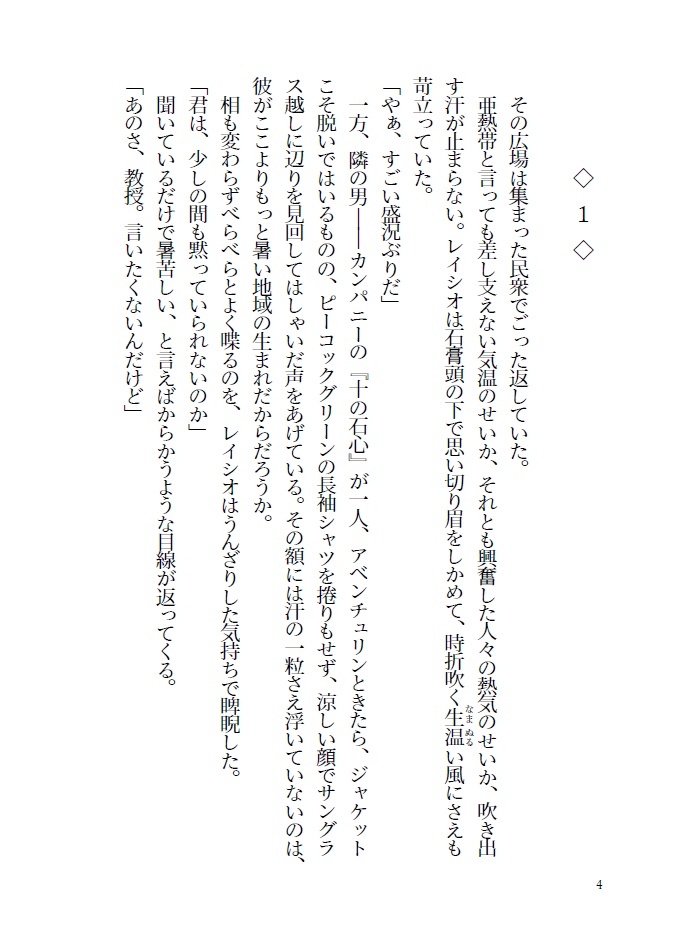 ◇ 1 ◇
その広場は集まった民衆でごった返していた。
亜熱帯と言っても差し支えない気温のせいか、それとも興奮した人々の熱気のせいか、吹き出
す汗が止まらない。レイシオは石膏頭の下で思い切り眉をしかめて、時折吹く生温い風にさえも
なまぬる
苛立っていた。
「やぁ、すごい盛況ぶりだ」
一方、隣の男――カンパニーの『十の石心』が一人、アベンチュリンときたら、ジャケット
こそ脱いではいるものの、ピーコックグリーンの長袖シャツを捲りもせず、涼しい顔でサングラ
ス越しに辺りを見回してはしゃいだ声をあげている。その額には汗の一粒さえ浮いていないのは、
彼がここよりもっと暑い地域の生まれだからだろうか。
相も変わらずべらべらとよく喋るのを、レイシオはうんざりした気持ちで睥睨した。
「君は、少しの間も黙っていられないのか」
聞いているだけで暑苦しい、と言えばからかうような目線が返ってくる。
「あのさ、教授。言いたくないんだけど」
4